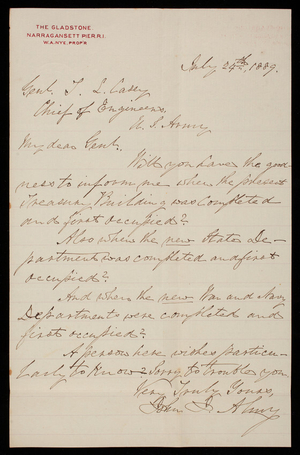 THE GLADSTONE.
NARRAGANSETT PIER R.I.
W.A. NYE, PROP'R
July 24th, 1889.
Genl. T. L. Casey
Chief of Engineers,
U. S. Army
My dear Genl.
Will you have the good-
ness to inform me when the present
Treasury Building was completed
and first occupied?
Also when the new State De-
partment was completed and first
occupied?
And when the new War and Navy
Departments were completed and
first occupied?
A person here wishes particu-
larly to know - Sorry to trouble you
Very Truly Yours,
John J. Almy